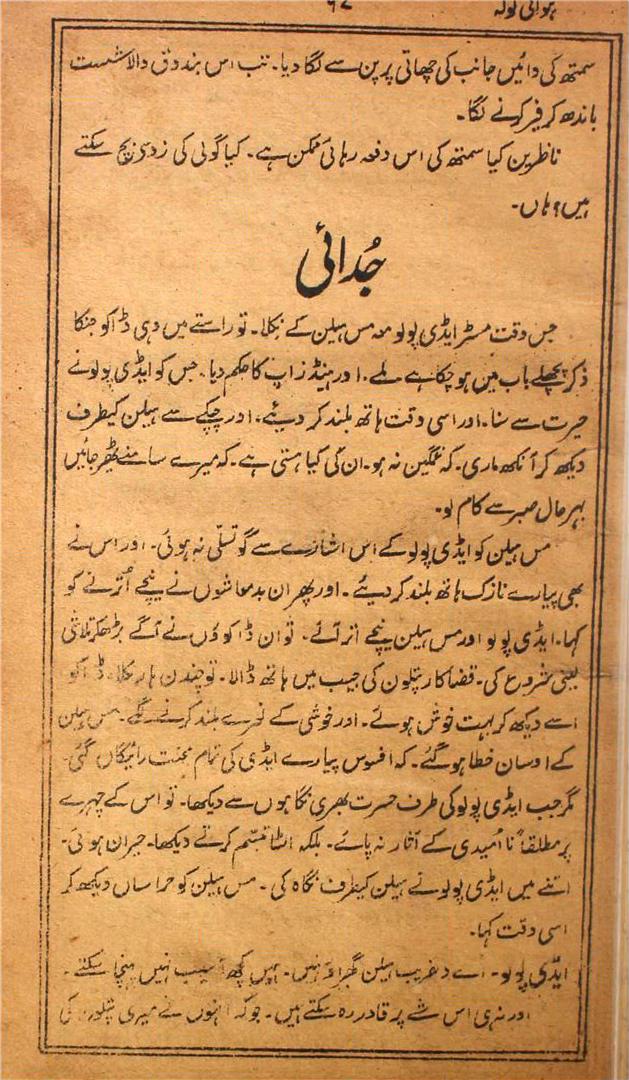 ہوائی گولہ
۹۷
سمتھ کی دائیں جانب کی چھاتی پر پن سے لگا دیا۔ تب اس بندوق والا شست
باندھ کر فیر کرنے لگا۔
ناظرین کیا سمتھ کی اس دفعہ رہائی ممکن ہے۔ کیا گولی کی زد سے بچ سکتے
ہیں؟ ہاں۔
جُدائی
جس وقت مسٹر ایڈی پولو معہ مس ہیلن کے نکلا۔ تو راستے میں وہی ڈاکو جنکا
ذکر پچھلے باب میں ہو چکا ہے ملے۔ اور ہینڈز اپ کا حکم دیا۔ جس کو ایڈی پولو نے
حیرت سے سنا۔ اور اسی وقت ہاتھ بلند کر دیئے۔ اور چپکے سے ہیلن کیطرف
دیکھ کر آنکھ ماری۔ کہ غمگین نہ ہو۔ ان کی کیا ہستی ہے۔ کہ میرے سامنے ٹھہر جائیں
بہر حال صبر سے کام لو۔
مس ہیلن کو ایڈی پولو کے اس اشارے سے گو تسلّی نہ ہوئی۔ اور اس نے
بھی پیارے نازک ہاتھ بلند کر دیئے۔ اور پھر ان بدمعاشوں نے نیچے اُترنے کو
کہا۔ ایڈی پولو اور مس ہیلن نیچے اتر آئے۔ تو ان ڈاکوؤں نے آگے بڑھکر تلاشی
لینی شروع کی۔ قضا کار پتلون کی جیب میں ہاتھ ڈالا۔ تو چندن ہار نکلا۔ ڈاکو
اسے دیکھ کر بہت خوش ہوئے۔ اور خوشی کے نعرے بلند کرنے لگے۔ مس ہیلن
کے اوسان خطا ہو گئے۔ کہ افسوس پیارے ایڈی کی تمام محنت رائیگاں گئی۔
مگر جب ایڈی پولو کی طرف حسرت بھری نگاہوں سے دیکھا۔ تو اس کے چہرے
پر مطلقاً نا اُمیدی کے آثار نہ پائے۔ بلکہ الٹا تبسّم کرتے دیکھا۔ حیران ہوئی۔
اتنے میں ایڈی پولو نے ہیلن کیطرف نگاہ کی۔ مس ہیلن کو حراساں دیکھ کر
اسی وقت کہا۔
ایڈی پولو۔ اے دلفریب ہیلن گھبراؤ نہیں۔ ہمیں کچھ آسیب نہیں پہنچا سکتے۔
اور نہ ہی اس شے پر قادر رہ سکتے ہیں۔ جو کہ انہوں نے میری پتلون کی